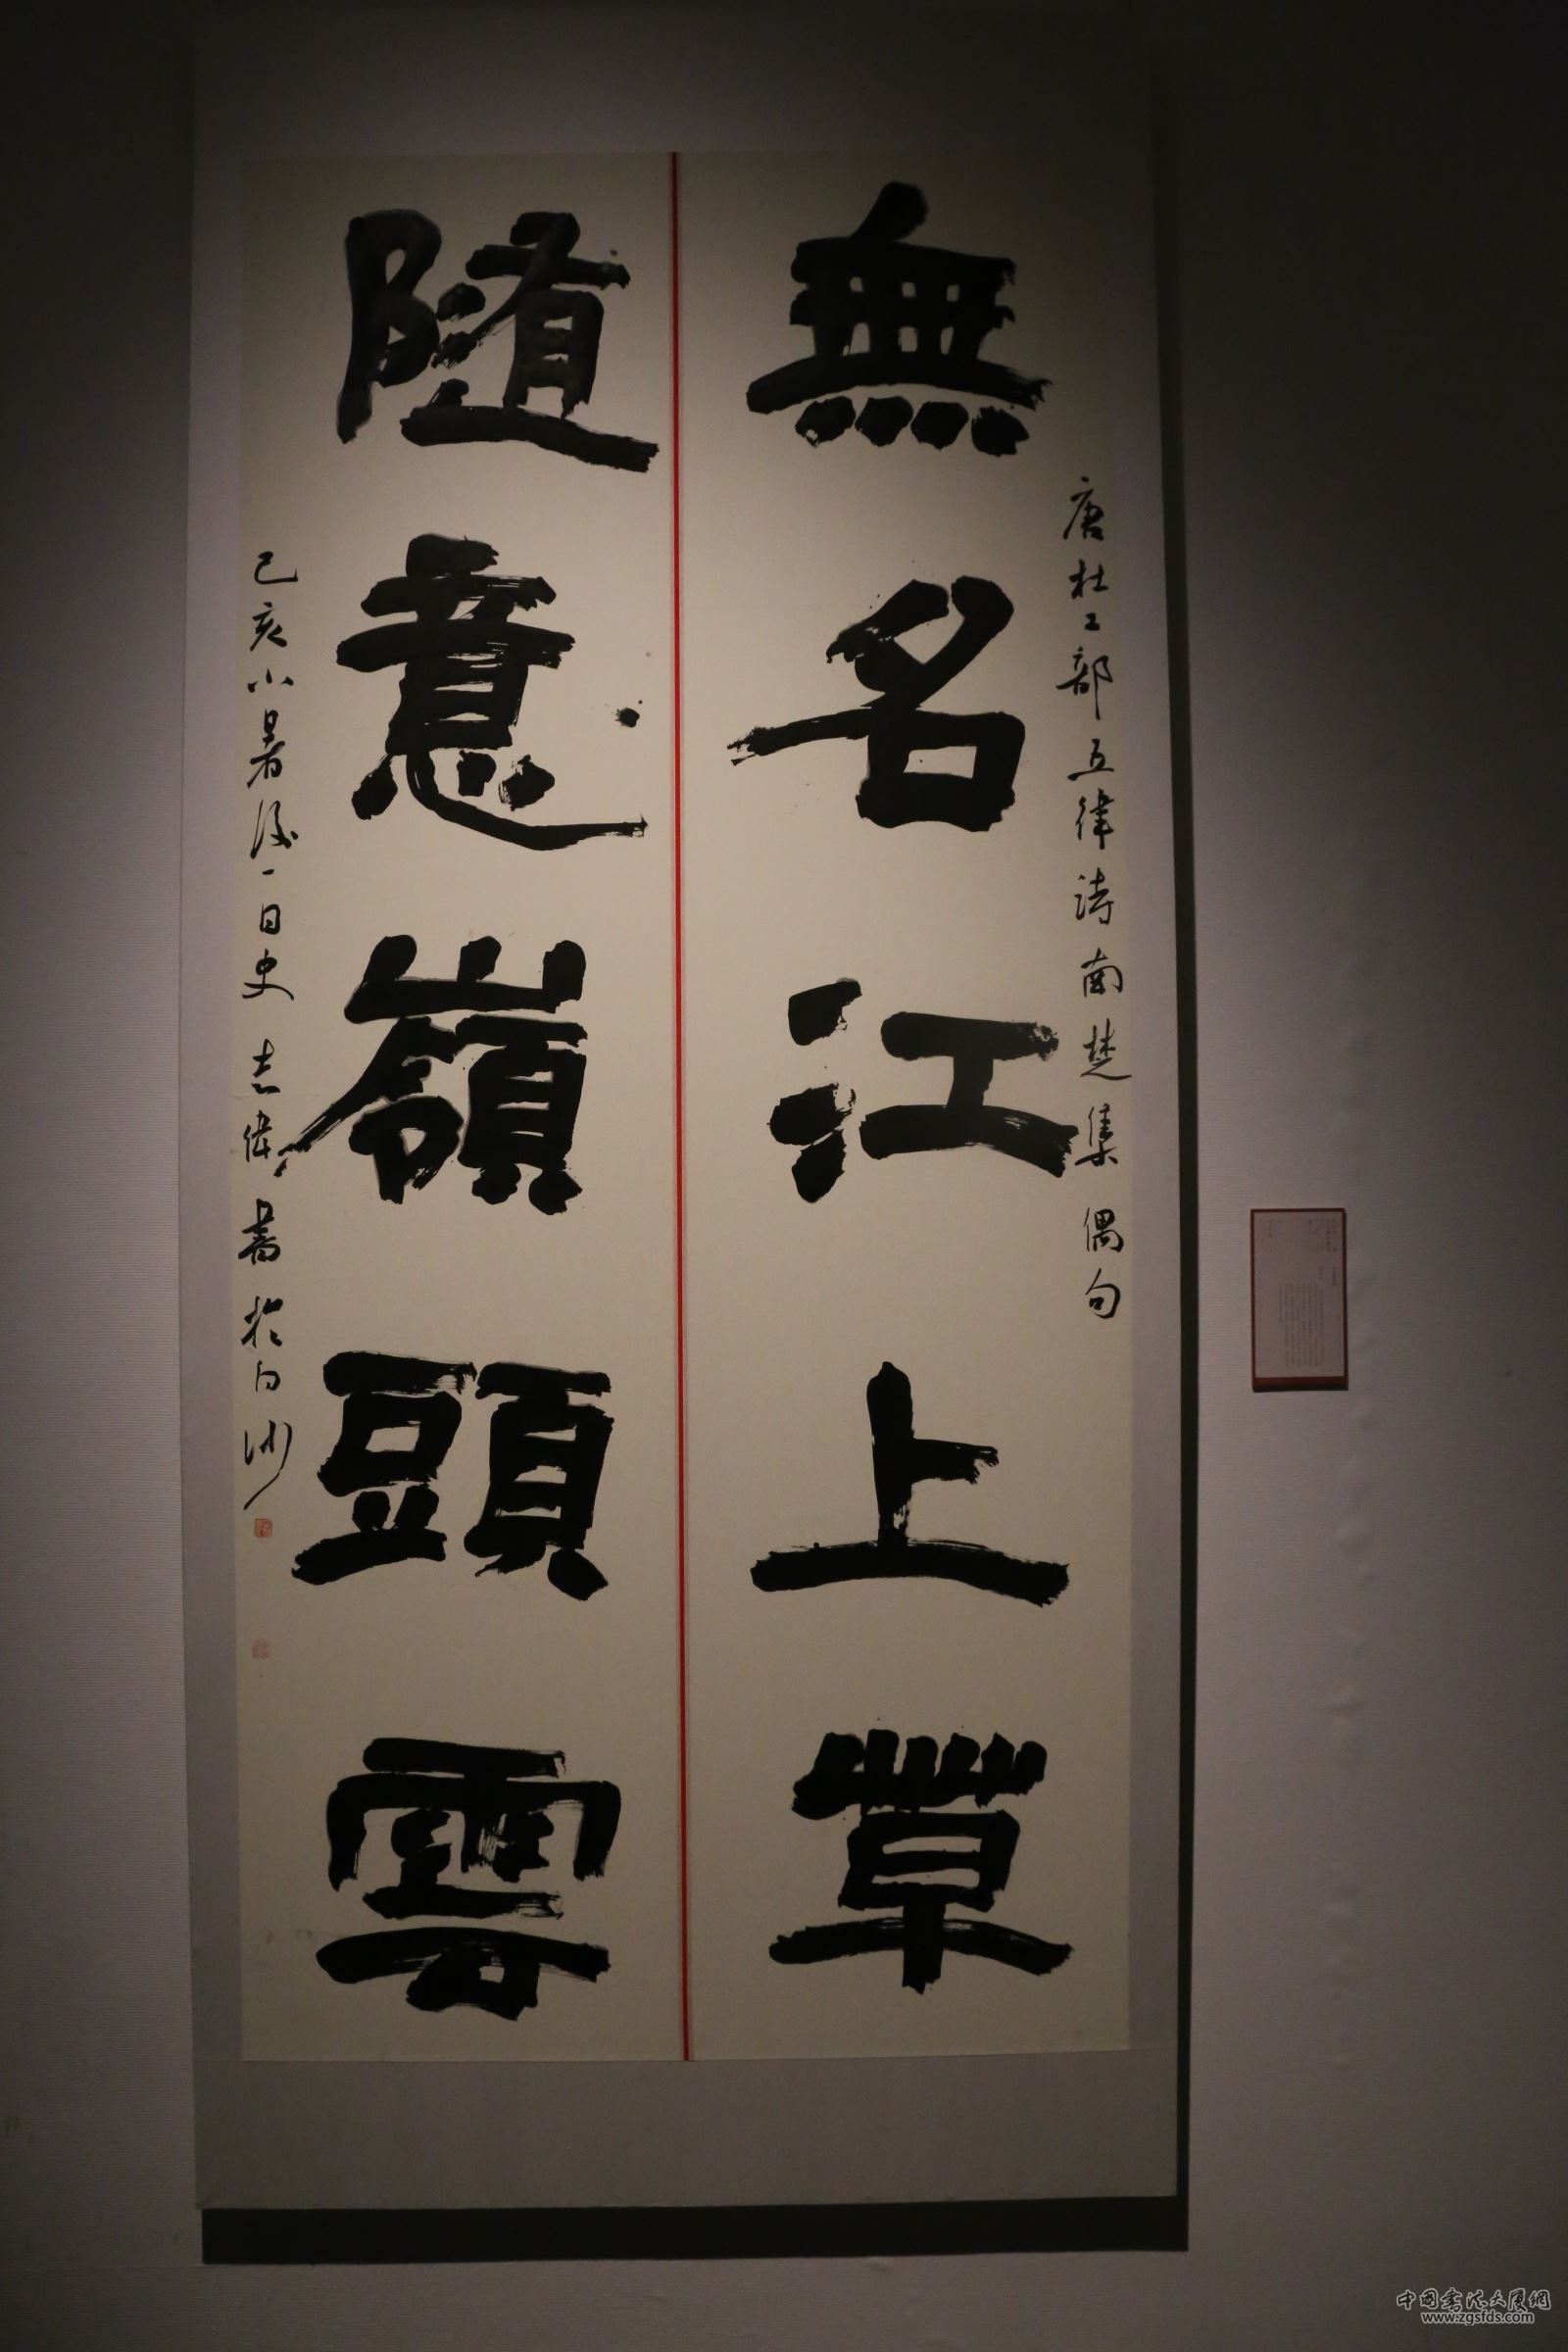 唐杜工部五律詩南楚集偶句
無名江上草
隨意嶺頭雲
己亥小暑後一日史志偉書於白沙
中国书法大厦網
www.zgsfds.com